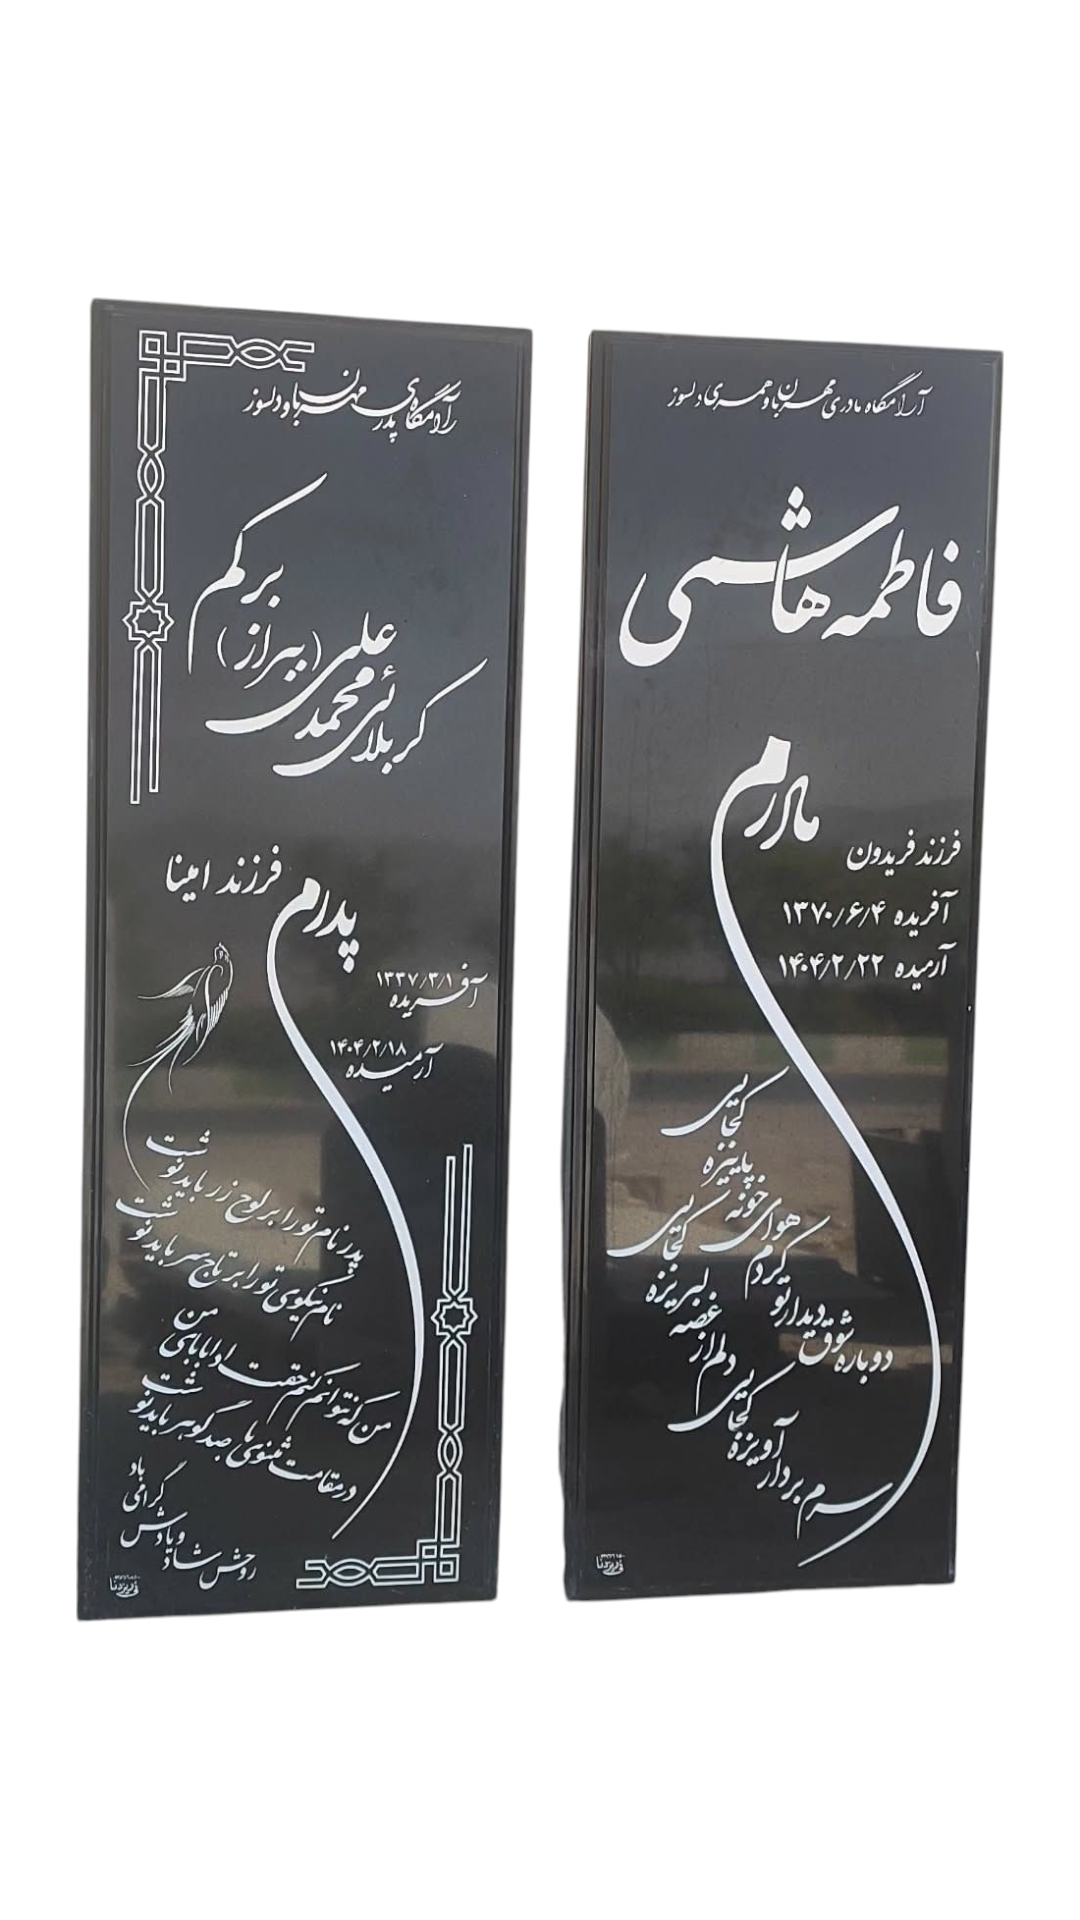 آرامگاه پدری مهربان و دلسوز
کربلائی محمد علی (بیراز) برکم
پدرم
فرزند امینا
آفریده ۱۳۳۷/۳/۱
آرمیده ۱۴۰۴/۲/۱۸
پدر نام تو را بر لوح زر باید نوشت
نام نیکوی تو را بر تاج سر باید نوشت
من که نتوانم کنم حقت ادا بابای من
در مقامت مثنوی ها صد گوهر باید نوشت
روحش شاد و یادش گرامی باد
آرامگاه مادری مهربان و همسری دلسوز
فاطمه هاشمی
مادرم
فرزند فریدون
آفریده ۱۳۷۰/۶/۴
آرمیده ۱۴۰۴/۲/۲۲
هوای خونه پاییزه کجائی
دوباره شوق دیدار تو کردم
دلم از غصه لبریزه کجائی
سرم بر دار آویزه کجائی